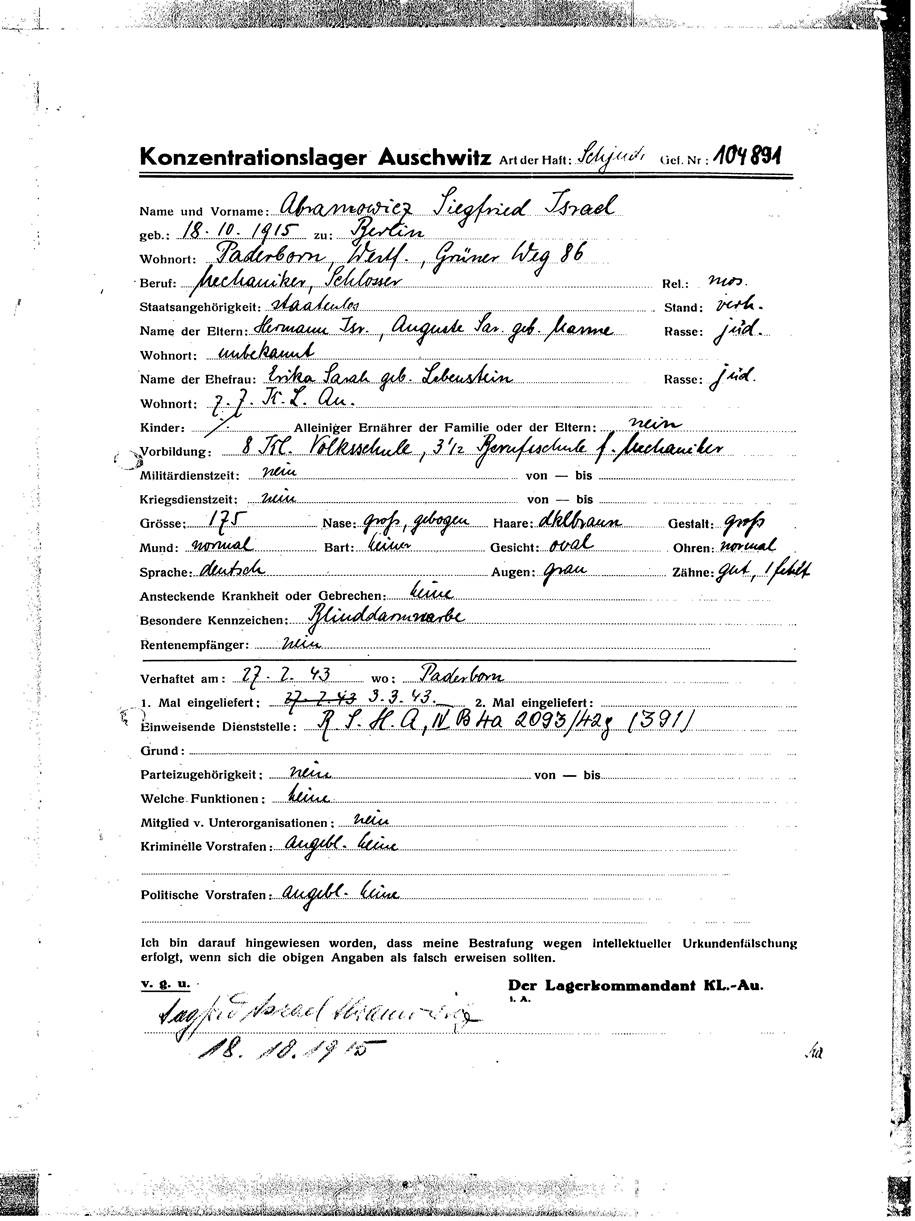 Konzentrationslager Auschwitz Art der Haft: Schjud. Gef. Nr: 104891
Name und Vorname: Abramowicz Siegfried Israel
geb.: 18. 10. 1915 zu: Berlin
Wohnort: Paderborn, Westf., Grüner Weg 86
Beruf: Mechaniker, Schlosser Rel.: mos.
Staatsangehörigkeit: staatenlos Stand: verh.
Name der Eltern: Hermann Isr., Auguste Sar. geb. Rasse: jüd.
Wohnort: unbekannt
Name der Ehefrau: Erika Sarah geb. Lebenstein Rasse: jüd.
Wohnort: z. Z. K. L. Au.
Kinder: ·/. Alleiniger Ernährer der Familie oder der Eltern: nein
Vorbildung: 8 Kl. Volksschule, 3 1/2 Berufsschule f. Mechaniker
Militärdienstzeit: nein von — bis
Kriegsdienstzeit: nein von — bis
Grösse: 175 Nase: groß, gebogen Haare: dklbraun Gestalt: groß
Mund: normal Bart: keiner Gesicht: oval Ohren: normal
Sprache: deutsch Augen: grau Zähne: gut, 1 fehlt
Ansteckende Krankheit oder Gebrechen: keine
Besondere Kennzeichen: Blinddarmnarbe
Rentenempfänger: nein
Verhaftet am: 27. 2. 43 wo: Paderborn
1. Mal eingeliefert: 27. 2. 43 3. 3. 43. 2. Mal eingeliefert:
Einweisende Dienststelle: R. S. H. A, IV B 4a 2093/42g (391)
Grund:
Parteizugehörigkeit: nein von — bis
Welche Funktionen: keine
Mitglied v. Unterorganisationen: nein
Kriminelle Vorstrafen: angebl. keine
Politische Vorstrafen: angebl. keine
Ich bin darauf hingewiesen worden, dass meine Bestrafung wegen intellektueller Urkundenfälschung
erfolgt, wenn sich die obigen Angaben als falsch erweisen sollten.
v. g. u. Der Lagerkommandant KL.-Au.
i. A.
Siegfried Israel Abramowicz
18. 10. 1915